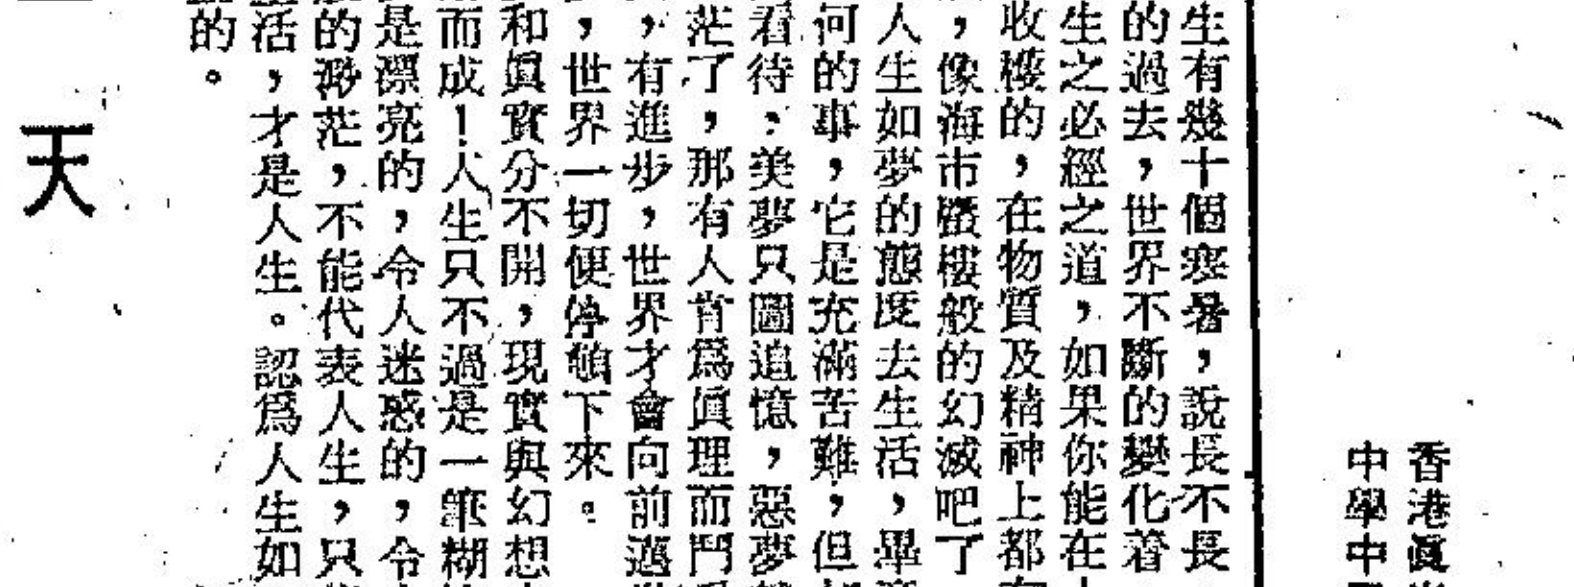 香港眞
中學中
生有幾十個寒暑，說長不長
的過去，世界不斷的變化着
生之必經之道，如果你能在
收穫的，在物質及精神上都
，像海市蜃樓般的幻滅吧了
人生如夢的態度去生活，畢
何的事，它是充滿苦難，但
看待：美夢只圖追憶，惡夢
茫了，那有人肯爲眞理而鬥
，有進步，世界才會向前邁
，世界一切便停頓下來。
和眞實分不開，現實與幻想
而成！人生只不過是一筆糊
是漂亮的，令人迷惑的，令
的渺茫，不能代表人生，只
活，才是人生。認爲人生如
的。
天